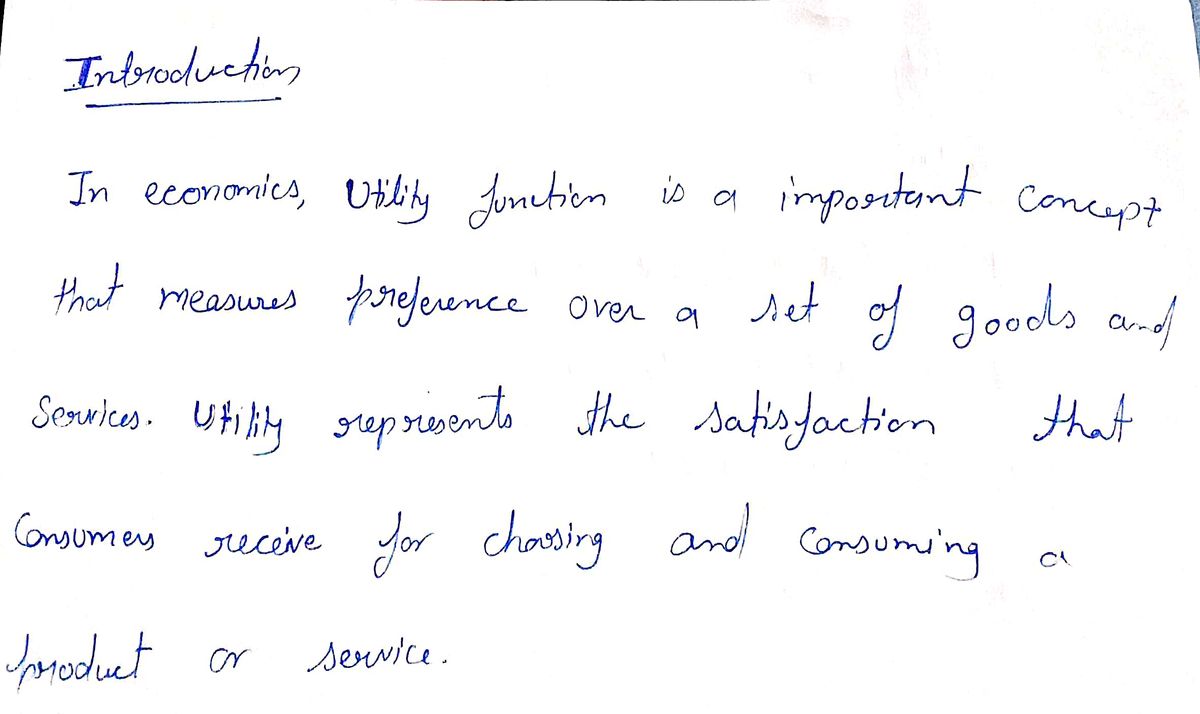 Introduction
In economics, Utility function is a important concept
that measures preference over a set of goods and
Services. Utility represents the satisfaction that
Consumers receive for choosing and consuming a
product or service.